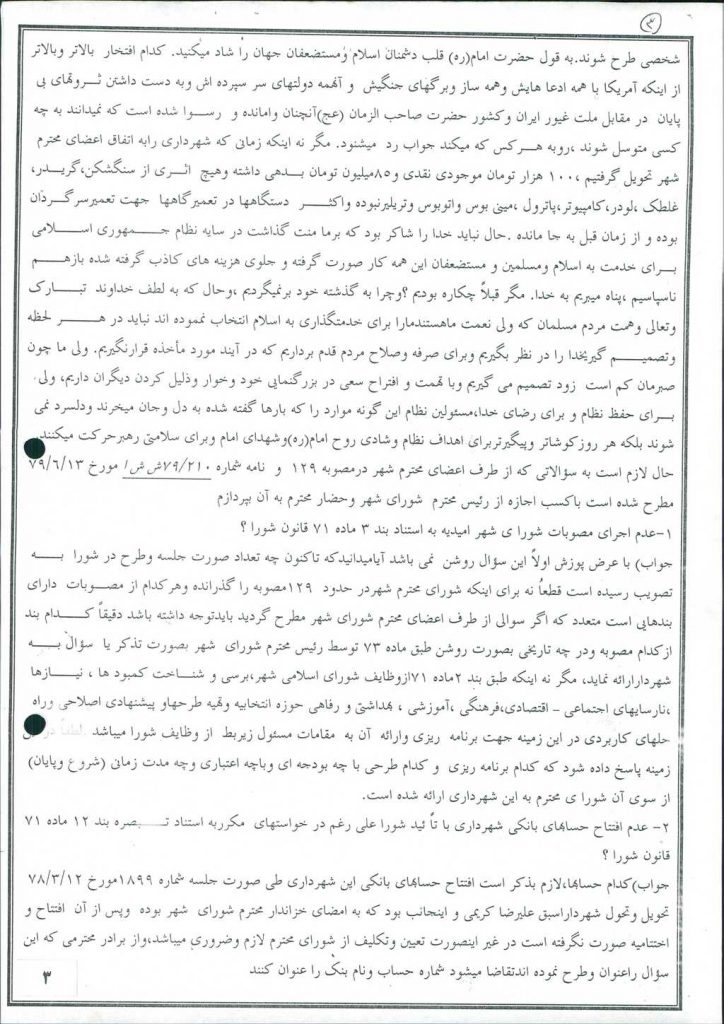 ۳
شخصی طرح شوند.به قول حضرت امام(ره) قلب دشمنان اسلام ومستضعفان جهان را شاد میکنید. کدام افتخار بالاتر وبالاتر
از اینکه آمریکا با همه ادعا هایش وهمه ساز وبرگهای جنگیش و آنهمه دولتهای سر سپرده اش وبه دست داشتن ثروتهای بی
پایان در مقابل ملت غیور ایران وکشور حضرت صاحب الزمان (عج)آنچنان وامانده و رسوا شده است که نمیدانند به چه
کسی متوسل شوند ،روبه هرکس که میکند جواب رد میشنود. مگر نه اینکه زمانی که شهرداری رابه اتفاق اعضای محترم
شهر تحویل گرفتیم ،۱۰۰ هزار تومان موجودی نقدی و۸۵میلیون تومان بدهی داشته وهیچ اثری از سنگشکن،گریدر،
غلطک ،لودر،کامپیوتر،پاترول ،مینی بوس واتوبوس وتریلیرنبوده واکثر دستگاهها در تعمیرگاهها جهت تعمیرسرگردان
بوده و از زمان قبل به جا مانده .حال نباید خدا را شاکر بود که برما منت گذاشت در سایه نظام جمهوری اسلامی
برای خدمت به اسلام ومسلمین و مستضعفان این همه کار صورت گرفته و جلوی هزینه های کاذب گرفته شده بازهم
ناسپاسیم ،پناه میبریم به خدا. مگر قبلاً چکاره بودیم ؟وچرا به گذشته خود برنمیگردیم ،وحال که به لطف خداوند تبارک
وتعالی وهمت مردم مسلمان که ولی نعمت ماهستندمارا برای خدمتگذاری به اسلام انتخاب نموده اند نباید در هر لحظه
وتصمیم گیریخدا را در نظر بگیریم وبرای صرفه وصلاح مردم قدم برداریم که در آیند مورد مأخذه قرارنگیریم. ولی ما چون
صبرمان کم است زود تصمیم می گیریم وبا تهمت و افتراح سعی در بزرگنمایی خود وخوار وذلیل کردن دیگران داریم، ولی
برای حفظ نظام و برای رضای خدا،مسئولین نظام این گونه موارد را که بارها گفته شده به دل وجان میخرند ودلسرد نمی
شوند بلکه هر روزکوشاتر وپیگیرتربرای اهداف نظام وشادی روح امام(ره)وشهدای امام وبرای سلامتی رهبرحرکت میکنند.
حال لازم است به سؤالاتی که از طرف اعضای محترم شهر درمصوبه ۱۲۹ و نامه شماره ۷۹/۲۱۰ش ش ا مورخ ۷۹/۶/۱۳
مطرح شده است باکسب اجازه از رئیس محترم شورای شهر وحضار محترم به آن بپردازم
۱-عدم اجرای مصوبات شورا ی شهر امیدیه به استناد بند ۳ ماده ۷۱ قانون شورا ؟
جواب) با عرض پوزش اولاً این سؤال روشن نمی باشد آیامیدانیدکه تاکنون چه تعداد صورت جلسه وطرح در شورا به
تصویب رسیده است قطعاُ نه برای اینکه شورای محترم شهردر حدود ۱۲۹مصوبه را گذرانده وهرکدام از مصوبات دارای
بندهایی است متعدد که اگر سوالی از طرف اعضای محترم شورای شهر مطرح گردید بایدتوجه داشته باشد دقیقاً کدام بند
ازکدام مصوبه ودر چه تاریخی بصورت روشن طبق ماده ۷۳ توسط رئیس محترم شورای شهر بصورت تذکر یا سؤال به
شهردارارائه نماید، مگر نه اینکه طبق بند ۲ماده ۷۱ازوظایف شورای اسلامی شهر،برسی و شناخت کمبود ها ، نیازها
،نارسایهای اجتماعی - اقتصادی،فرهنگی ،آموزشی ، بهداشتی و رفاهی حوزه انتخابیه وتهیه طرحهاو پیشنهادی اصلاحی وراه
حلهای کاربردی در این زمینه جهت برنامه ریزی وارائه آن به مقامات مسئول زیربط از وظایف شورا میباشد .لطفاً در این
زمینه پاسخ داده شود که کدام برنامه ریزی و کدام طرحی با چه بودجه ای وباچه اعتباری وچه مدت زمانی (شروع وپایان)
از سوی آن شورا ی محترم به این شهرداری ارائه شده است.
۲- عدم افتتاح حسابهای بانکی شهرداری با تأ ئید شورا علی رغم در خواستهای مکرربه استناد تبصره بند ۱۲ ماده ۷۱
قانون شورا ؟
جواب)کدام حسابها،لازم بذکر است افتتاح حسابهای بانکی این شهرداری طی صورت جلسه شماره ۱۸۹۹مورخ ۷۸/۳/۱۲
تحویل وتحول شهرداراسبق علیرضا کریمی و اینجانب بود که به امضای خزاندار محترم شورای شهر بوده وپس از آن افتتاح و
اختتامیه صورت نگرفته است در غیر اینصورت تعیین وتکلیف از شورای محترم لازم وضروری میباشد،واز برادر محترمی که این
سؤال راعنوان وطرح نموده اندتقاضا میشود شماره حساب ونام بنک را عنوان کنند
۳